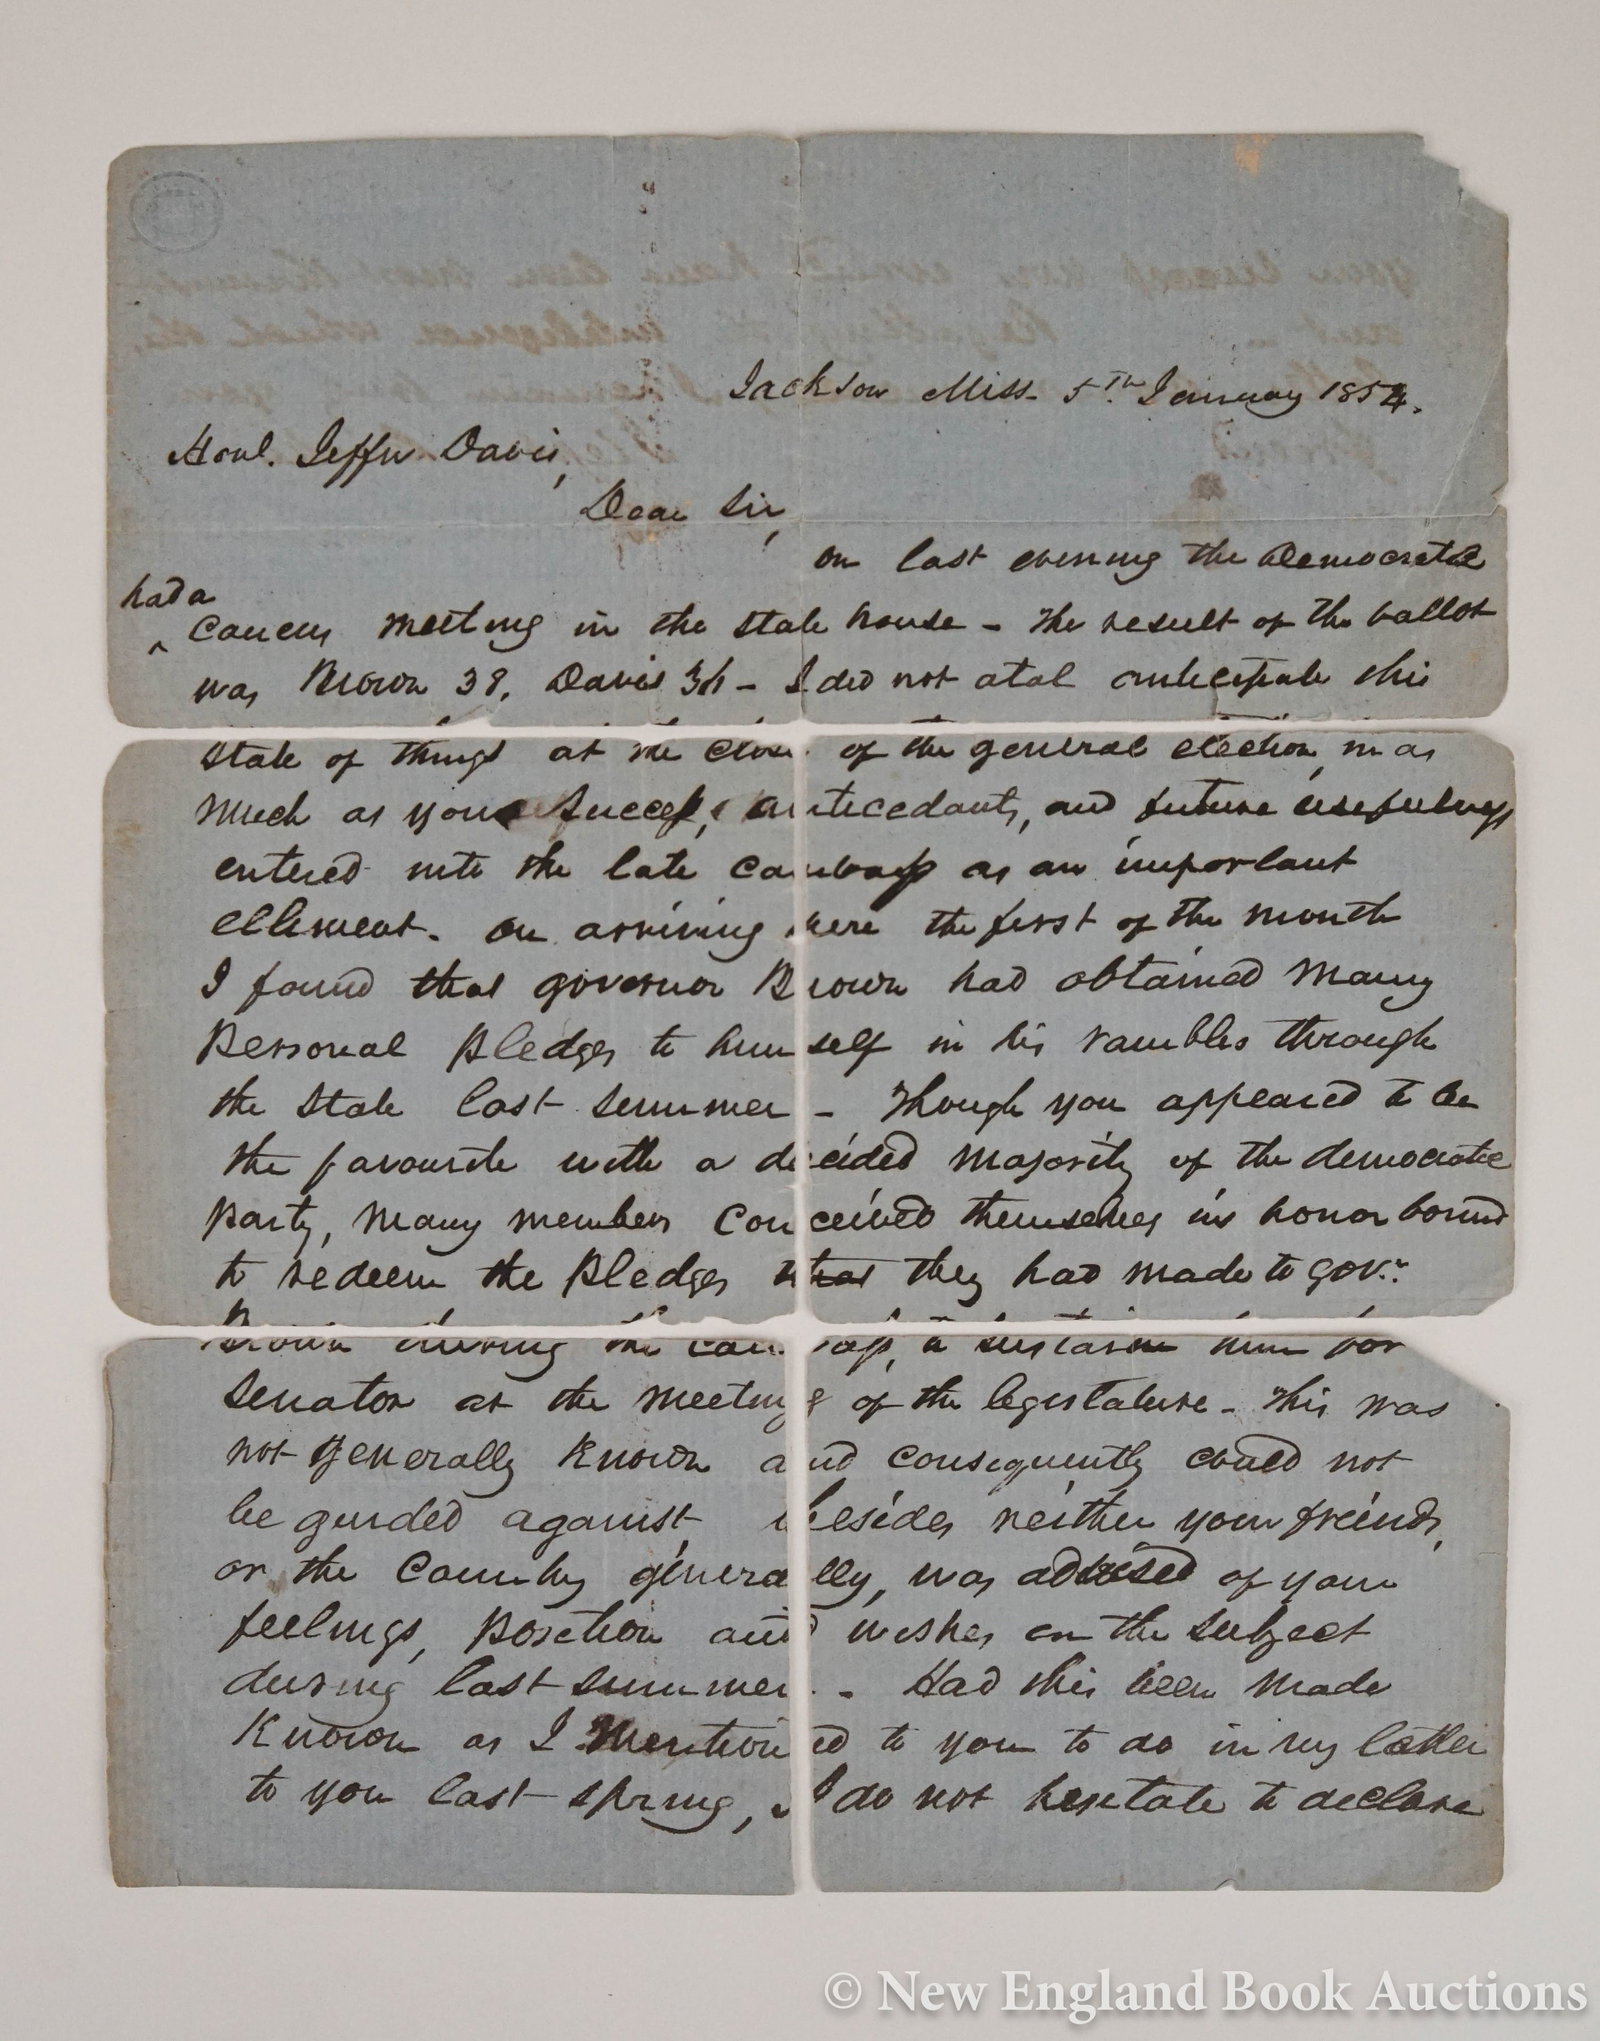 Jackson Miss. 5th. January 1854.
Honl. Jeffn Davis,
Dear Sir,
on last evening the Democratic
had a
^ Caucus meeting in the State house - The result of the ballot
was Brown 38, Davis 36 - I did not atal anticipate this
state of things at the close of the general election, in as
much as your success, antecedants, and future usefulness
entered into the late canvass as an important
elliment. On arriving here the first of the month
I found that governor Brown had obtained many
Personal Pledges to himself in his rambles through
the State last summer - Though you appeared to be
the favourite with a decided majority of the democratic
Party, many members conceived themselves in honor bound
to redeem the Pledges that they had made to Govr.
Brown during the canvass, to sustain him for
Senator at the meeting of the legistature - This was
not generally known and consequently could not
be gurded against, besides neither your freinds,
or the Country generally, was advised of your
feelings, Position and wishes on the subject
during last summer - Had this been made
Known as I mentioned to you to do in my letter
to you last spring, I do not hesitate to declare
© New England Book Auctions